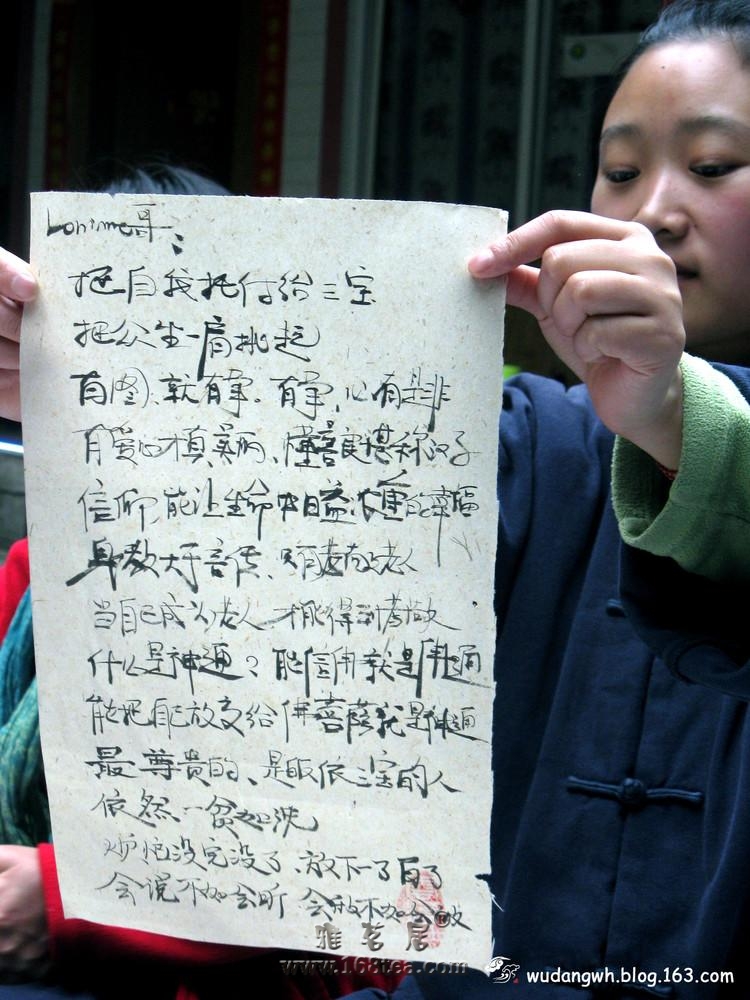 哥：
把自我托付给三宝
把众生一肩挑起
有图、就有争. 有争、心有是非
有爱心才真美丽、懂善良堪称汉子
信仰能让生命日益丰富的幸福
身教大于言传、只有走敬老人
当自己成为老人 才能得到孝敬
什么是神通？能信佛就是神通
能把自己放交给佛菩萨就是神通
最尊贵的、是皈依三宝的人
依然一贫如洗
烦恼没完没了、放下一了百了
会说不如会听 会不如会
雅茗居
www.168tea.com
wudangwh.blog.163.com